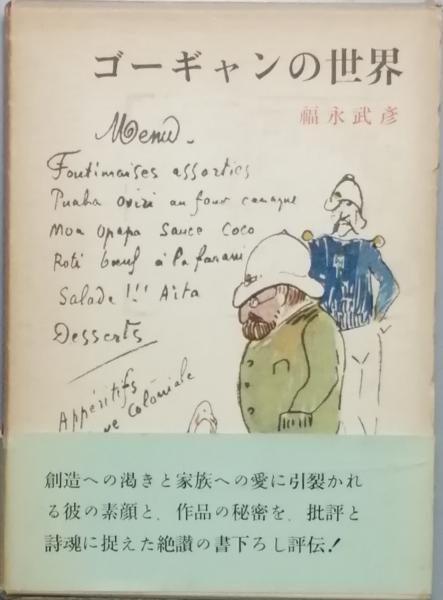 ゴーギャンの世界
福永武彦
Menu.
Foutimaises assorties
Puaha oviri au four canaque
Moa opapa Sauce Coco
Roti bœuf à la farani
Salade !!! Aita
Desserts
Appéritifs
Coloniale
創造への渇きと家族への愛に引裂かれ
る彼の素顔と、作品の秘密を、批評と
詩魂に捉えた絶讃の書下ろし評伝!